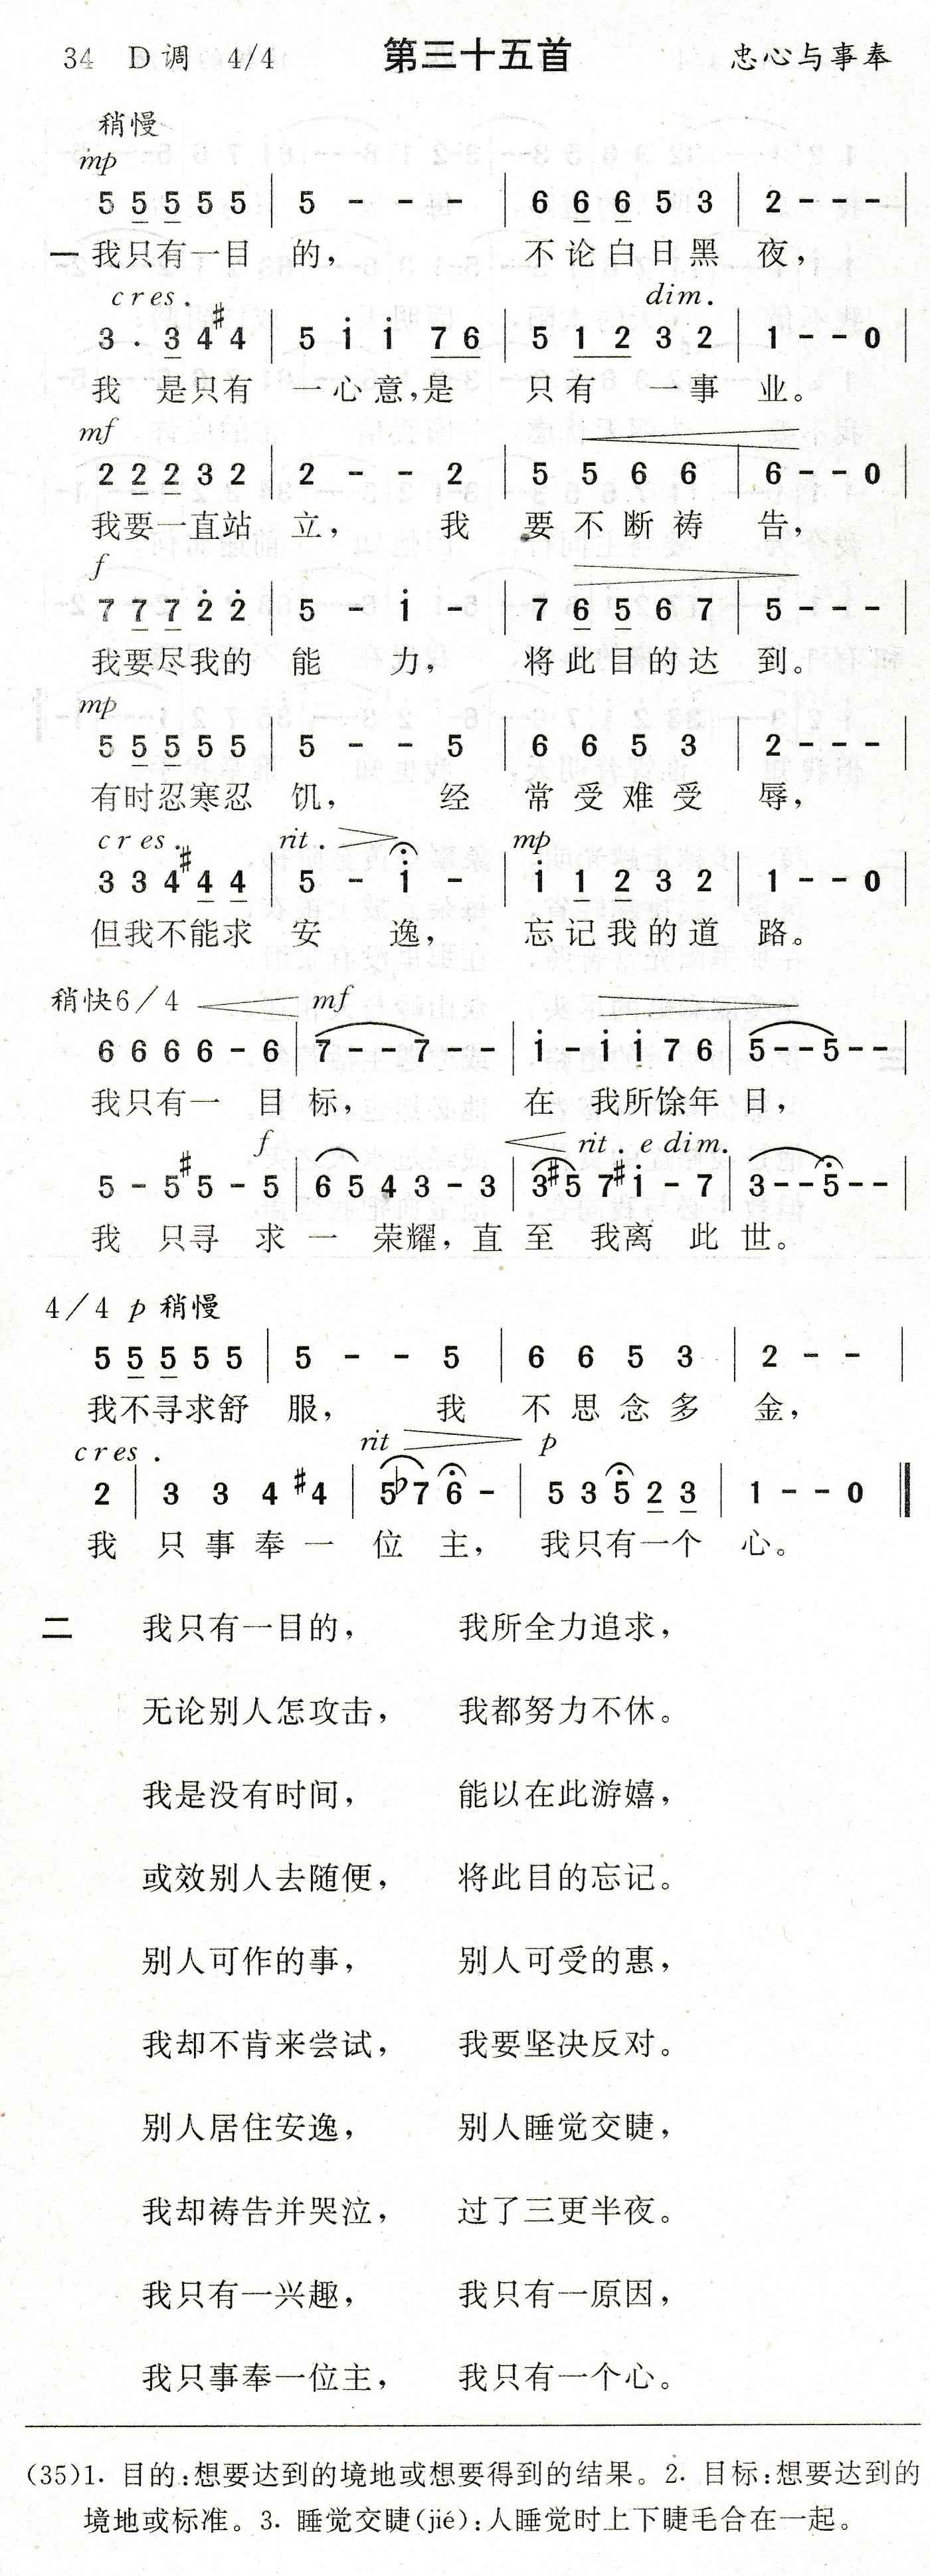 34 D调 4/4 第三十五首 忠心与事奉
稍慢
mp
5 5 5 5 5 | 5 - - - | 6 6 6 5 3 | 2 - - - |
一 我只有一目 的, 不论白日黑 夜,
cres. dim.
3 . 3 4 #4 | 5 i i 7 6 | 5 1 2 3 2 | 1 - - 0 |
我 是只有 一心意,是 只有 一事 业。
mf
2 2 2 3 2 | 2 - - 2 | 5 5 6 6 | 6 - - 0 |
我要一直站 立, 我 要不断祷 告,
f
7 7 7 2̇ 2̇ | 5 - i - | 7 6 5 6 7 | 5 - - - |
我要尽我的 能 力, 将此目的达 到。
mp
5 5 5 5 5 | 5 - - 5 | 6 6 5 3 | 2 - - - |
有时忍寒忍 饥, 经 常受难受 辱,
cres. rit. mp
3 3 4 #4 4 | 5 - i - | i 1 2 3 2 | 1 - - 0 |
但我不能求 安 逸, 忘记我的道 路。
稍快6/4 mf
6 6 6 6 - 6 | 7 - - 7 - - | i - i i 7 6 | 5 - - 5 - - |
我只有一 目 标, 在 我所馀年 日,
f rit. e dim.
5 - 5 #5 - 5 | 6 5 4 3 - 3 | 3 #5 7 #i - 7 | 3 - - 5 - - |
我 只寻 求 一 荣耀,直 至 我离 此 世。
4/4 p 稍慢
5 5 5 5 5 | 5 - - 5 | 6 6 5 3 | 2 - - |
我不寻求舒 服, 我 不思念多 金,
cres. rit p
2 | 3 3 4 #4 | 5 ♭7 6 - | 5 3 5 2 3 | 1 - - 0 ‖
我 只事奉一 位 主, 我只有一个 心。
二 我只有一目的, 我所全力追求,
无论别人怎攻击, 我都努力不休。
我是没有时间, 能以在此游嬉,
或效别人去随便, 将此目的忘记。
别人可作的事, 别人可受的惠,
我却不肯来尝试, 我要坚决反对。
别人居住安逸, 别人睡觉交睫,
我却祷告并哭泣, 过了三更半夜。
我只有一兴趣, 我只有一原因,
我只事奉一位主, 我只有一个心。
(35)1. 目的:想要达到的境地或想要得到的结果。2. 目标:想要达到的
境地或标准。3. 睡觉交睫(jié):人睡觉时上下睫毛合在一起。